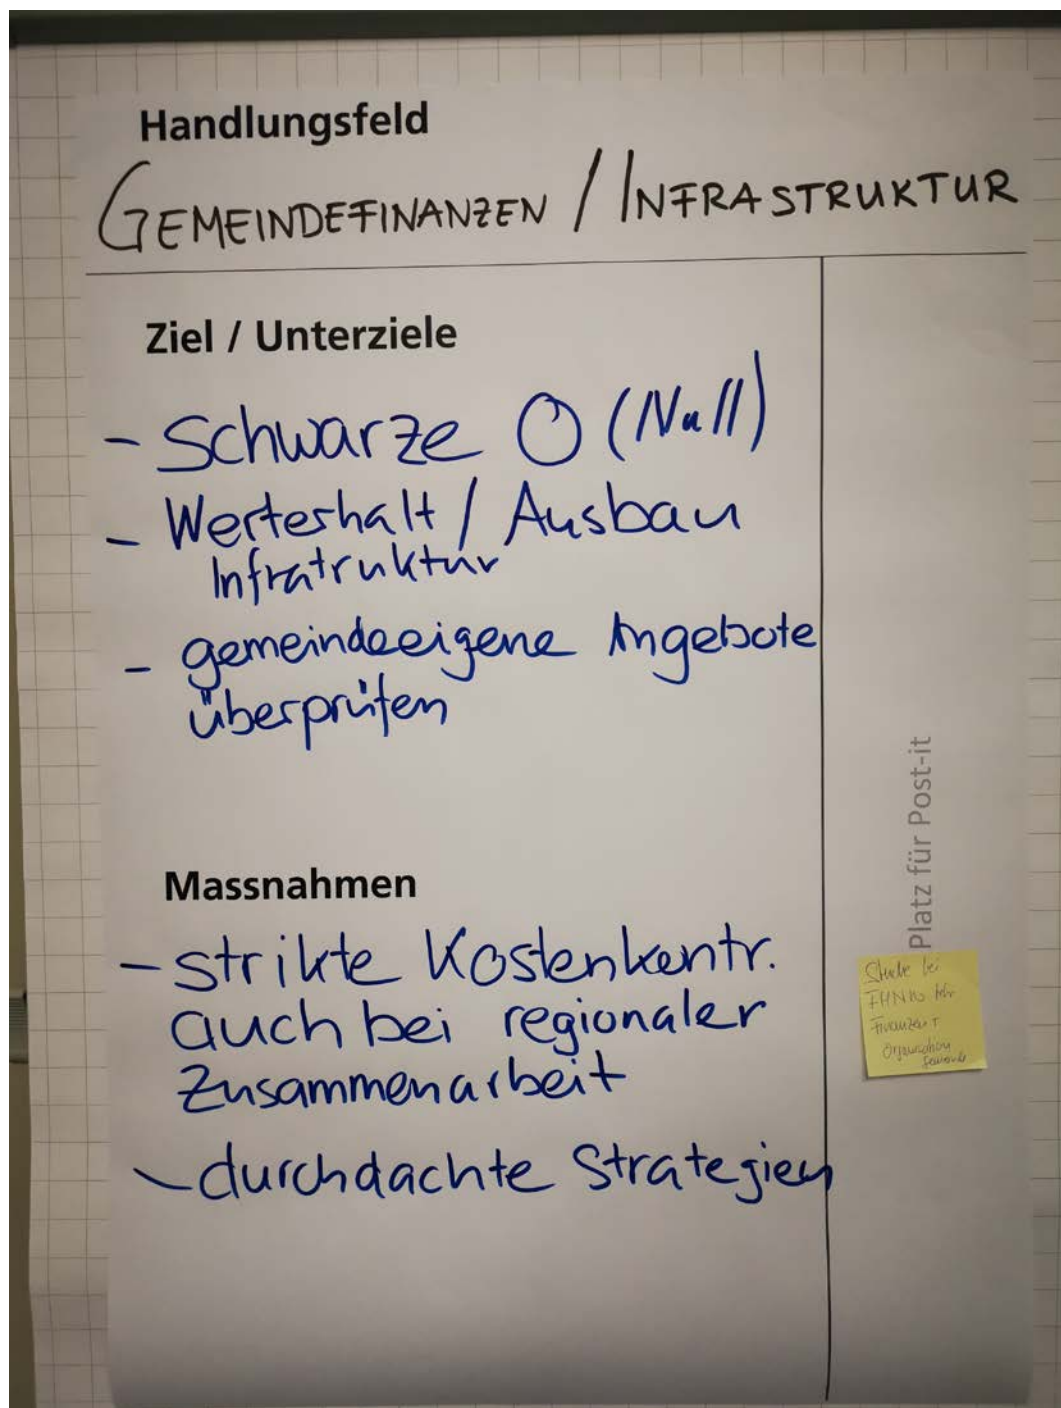 Handlungsfeld
GEMEINDEFINANZEN / INFRASTRUKTUR
Ziel / Unterziele
- Schwarze O (Null)
- Werterhalt / Ausbau
Infratruktur
- gemeindeeigene Angebote
überprüfen
Massnahmen
- strikte Kostenkontr.
auch bei regionaler
Zusammenarbeit
- durchdachte Strategien
Platz für Post-it
bei
Finanzen +
Organisation